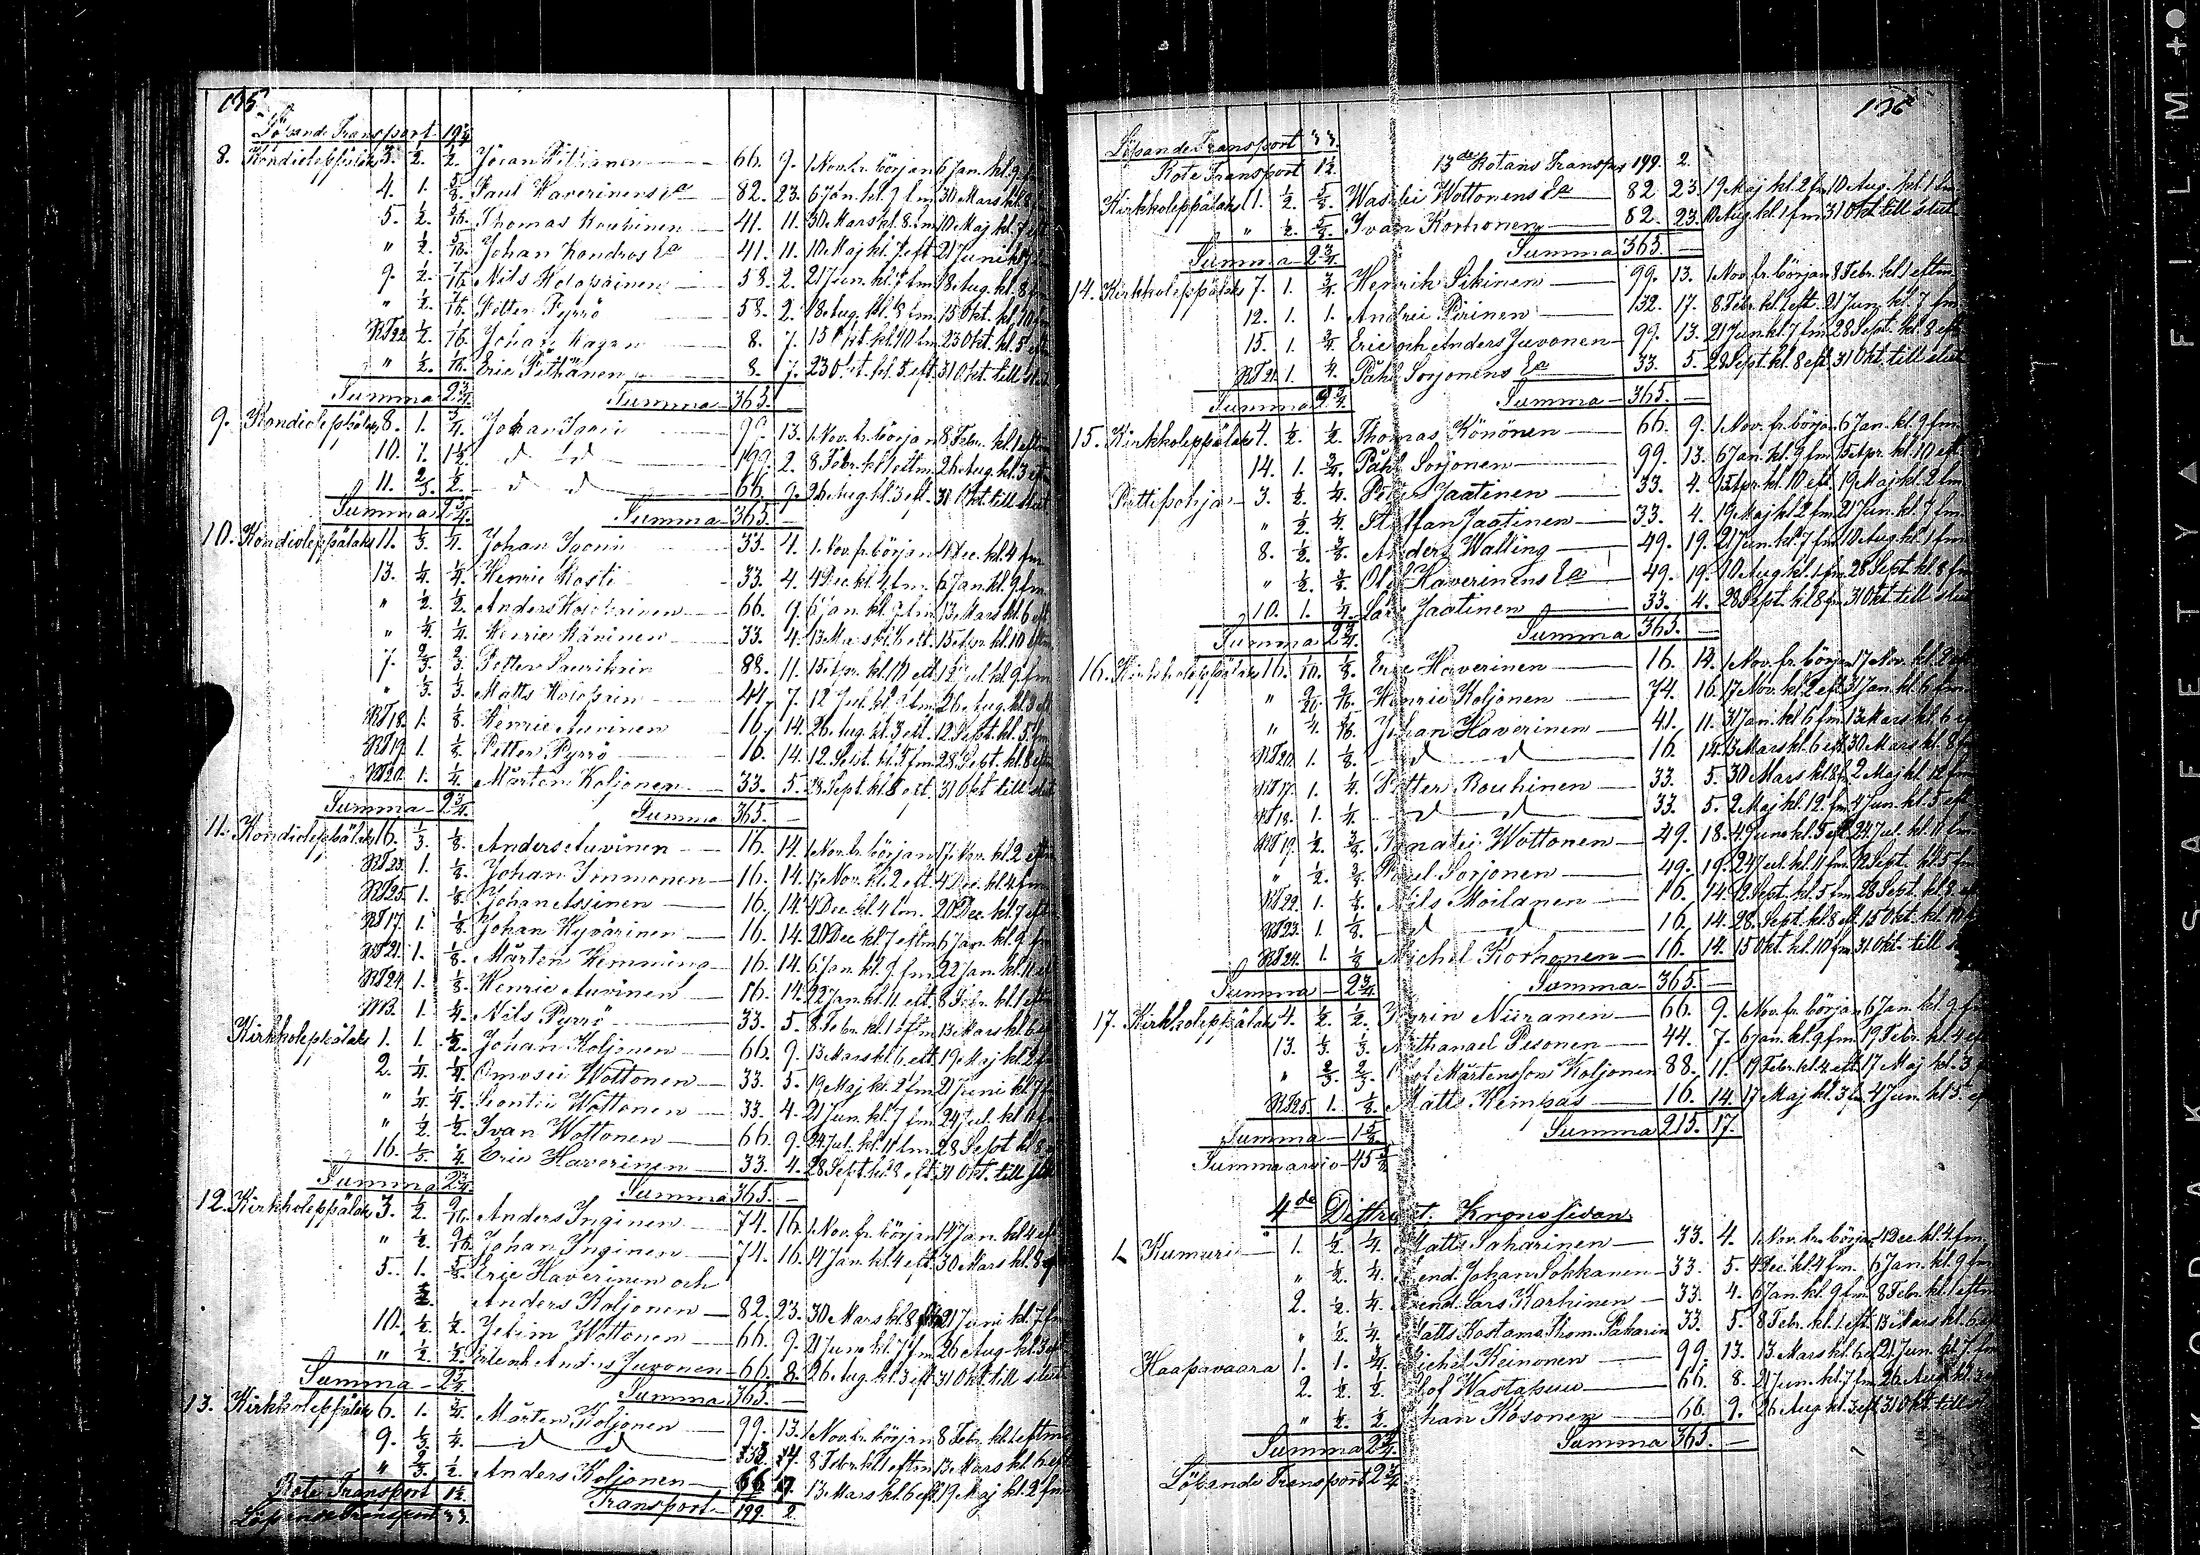 135.
Löpande Transport 19 3/4
8. Kondioleppälaks 3. 1/2. 1/2. Johan Pithänen 66. 9. 1 Nov. fr. början 6 Jan. kl. 9 fm
4. 1. 5/8. Paul Haverinens Ea 82. 23. 6 Jan. kl. 9 fm. 30 Mars kl. 8
5. 1/2. 5/16. Thomas Rouhinen 41. 11. 30 Mars kl. 8 fm 10 Maj kl. 7 eft
" 1/2. 5/16. Johan Kondros Ea 41. 11. 10 Maj kl. 7 eft 21 Juni kl. 7
9. 1/2. 7/16. Nils Holopainen 58. 2. 21 Jun. kl. 7 fm. 18 Aug. kl. 8 fm
" 1/2. 7/16. Petter Pyrrö 58. 2. 18 Aug. kl. 8 fm. 15 Okt. kl. 10 fm
NT 22. 1/2. 1/16. Johan Kagan 8. 7. 15 Okt. kl. 10 fm. 23 Okt. kl. 5 eft
" 1/2. 1/16. Eric Pithänen 8. 7. 23 Okt. kl. 5 eft. 31 Okt. till slut
Summa 2 3/4. Summa 365. —
9. Kondioleppälaks 8. 1. 3/4. Johan Igoni 99. 13. 1. Nov. fr. början 8 Febr. kl. 1 eftm
10. 1. 1 1/2. d d 199. 2. 8 Febr. kl. 1 eftm. 26 Aug. kl. 3 eft
11. 2/3. 1/2. d d 66. 9. 26 Aug. kl. 3 eft. 31 Okt. till slut
Summa 2 3/4. Summa 365. —
10. Kondioleppälaks 11. 1/3. 1/4. Johan Igoni 33. 4. 1. Nov. fr. början 4 Dec. kl. 4 fm.
13. 1/4. 1/4. Henric Kosti 33. 4. 4 Dec. kl. 4 fm. 6 Jan. kl. 9 fm.
" 1/2. 1/2. Anders Holopainen 66. 9. 6 Jan. kl. 9 fm. 13 Mars kl. 6 eft
" 1/4. 1/4. Henric Räninen 33. 4. 13 Mars kl. 6 eft. 15 Apr. kl. 10 eftm
7. 2/3. 2/3. Petter Saurikrin 88. 11. 15 Apr. kl. 10 eft. 12 Jul. kl. 9 fm.
" 1/3. 1/3. Matts Holopain 44. 7. 12 Jul. kl. 9 fm. 26 Aug. kl. 3 eft
NT 18. 1. 1/8. Henric Auvinen 16. 14. 26 Aug. kl. 3 eft. 12 Sept. kl. 5 fm
NT 19. 1. 1/8. Petter Pyrrö 16. 14. 12 Sept. kl. 5 fm. 28 Sept. kl. 8 eftm
NT 20. 1. 1/4. Mårten Koljonen 33. 5. 28 Sept. kl. 8 eft. 31 Okt till slut
Summa 2 3/4. Summa 365. —
11. Kondioleppälaks 16. 1/3. 1/8. Anders Auvinen 16. 14. 1 Nov. fr. början 17 Nov. kl. 2 eftm
NT 23. 1. 1/8. Johan Immonen 16. 14. 17 Nov. kl. 2 eft. 4 Dec. kl. 4 fm
NT 25. 1. 1/8. Johan Assinen 16. 14. 4 Dec. kl. 4 fm. 20 Dec. kl. 7 eftm
NT 17. 1. 1/8. Johan Hyvärinen 16. 14. 20 Dec kl. 7 eftm 6 Jan. kl. 9 fm
NT 21. 1. 1/8. Mårten Hemming 16. 14. 6 Jan. kl. 9 fm. 22 Jan. kl. 11 eft
NT 24. 1. 1/8. Henric Auvinen 16. 14. 22 Jan. kl. 11 eft. 8 Febr. kl. 1 eftm
NB. 1. 1/4. Nils Pyrrö 33. 5. 8 Febr. kl. 1 eftm 13 Mars kl. 6 eft
Kirkkoleppälaks 1. 1. 1/2. Johan Koljonen 66. 9. 13 Mars kl. 6 eft. 19 Maj kl. 2 fm
2. 1/4. 1/4. Omosei Wottonen 33. 5. 19 Maj kl. 2 fm 21 Juni kl. 7 fm
" 1/4. 1/4. Leontei Wottonen 33. 4. 21 Jun. kl. 7 fm 24 Jul. kl. 11 fm
" 1/2. 1/2. Ivan Wottonen 66. 9. 24 Jul. kl. 11 fm 28 Sept kl. 8
16. 1/3. 1/4. Eric Haverinen 33. 4. 28 Sept. kl. 8 eft. 31 Okt. till slut
Summa 2 3/4. Summa 365. —
12. Kirkkoleppälaks 3. 1/2. 9/16. Anders Inginen 74. 16. 1 Nov. fr. början 14 Jan. kl. 4 eft
" 1/2. 9/16. Johan Inginen 74. 16. 14 Jan. kl. 4 eft. 30 Mars kl. 8
5. 1. 5/8. Eric Haverinen och
Anders Koljonen 82. 23. 30 Mars kl. 8 fm 21 Juni kl. 7 fm
10. 1/2. 1/2. Jefim Wottonen 66. 9. 21 Juni kl. 7 fm 26 Aug. kl. 3 eft
" 1/2. 1/2. Eric och Anders Juvonen 66. 8. 26 Aug. kl. 3 eft 31 Okt. till slut
Summa 2 3/4. Summa 365. —
13. Kirkkoleppälaks 6. 1. 3/4. Mårten Koljonen 99. 13. 1 Nov. fr. början 8 Febr. kl. 1 eftm
9. 1/3. 1/4. d d 33. 4. 8 Febr. kl. 1 eftm 13 Mars kl. 6 eft
" 2/3. 1/2. Anders Koljonen 66. 9. 13 Mars kl. 6 eft 19 Maj kl. 2 fm
Rote Transport 1 1/2. Transport 199. 2.
Löpande Transport 33.
136
Löpande Transport 33.
Rote Transport 1 1/2. 13de Rotans Transport 199. 2.
Kirkkoleppälaks 11. 1/2. 5/8. Wasilei Wottonens Ea 82. 23. 19 Maj kl. 2 fm 10 Aug. kl. 1 fm
" 1/2. 5/8. Ivan Korhonen 82. 23. 10 Aug kl. 1 fm 31 Okt. till slut
Summa 2 3/4. Summa 365. —
14. Kirkkoleppälaks 7. 1. 3/4. Henrik Sikinen 99. 13. 1 Nov. fr. början 8 Febr. kl. 1 eftm
12. 1. 1. Andrei Pirinen 132. 17. 8 Febr. kl. 1 eft. 21 Jun. kl. 7 fm
15. 1. 3/4. Eric och Anders Juvonen 99. 13. 21 Jun. kl. 7 fm 28 Sept. kl. 8 eft
NT 21. 1. 1/4. Påhl Sorjonens Ea 33. 5. 28 Sept. kl. 8 eft 31 Okt. till slut
Summa 2 3/4. Summa 365. —
15. Kirkkoleppälaks 4. 1/2. 1/2. Thomas Könönen 66. 9. 1 Nov. fr. början 6 Jan. kl. 9 fm.
14. 1. 3/4. Påhl Sorjonen 99. 13. 6 Jan. kl. 9 fm 15 Apr. kl. 10 eft
Puttipohja 3. 1/2. 1/4. Petter Jaatinen 33. 4. 15 Apr. kl. 10 eft. 19 Maj kl. 2 fm
" 1/2. 1/4. Staffan Jaatinen 33. 4. 19 Maj kl. 2 fm 21 Jun. kl. 7 fm
8. 1/2. 3/8. Anders Walling 49. 19. 21 Jun. kl. 7 fm 10 Aug. kl. 1 fm
" 1/2. 3/8. Olof Haverinens Ea 49. 19. 10 Aug. kl. 1 fm 28 Sept. kl. 8 fm
10. 1. 1/4. Lars Jaatinen 33. 4. 28 Sept. kl. 8 fm 31 Okt. till slut
Summa 2 3/4. Summa 365. —
16. Kirkkoleppälaks 16. 1/10. 1/8. Eric Haverinen 16. 14. 1 Nov. fr. början 17 Nov. kl. 2 eft
" 9/20. 9/16. Henric Koljonen 74. 16. 17 Nov. kl. 2 eft 31 Jan. kl. 6 fm
" 1/4. 5/16. Johan Haverinen 41. 11. 31 Jan. kl. 6 fm 13 Mars kl. 6 eft
NT 20. 1. 1/8. d d 16. 14. 13 Mars kl. 6 eft 30 Mars kl. 8 fm
NT 17. 1. 1/4. Petter Rouhinen 33. 5. 30 Mars kl. 8 fm 2 Maj kl. 12 fm
NT 18. 1. 1/4. d d 33. 5. 2 Maj kl. 12 fm 4 Jun. kl. 5 eft
NT 19. 1/2. 3/8. Ignatei Wottonen 49. 18. 4 Juni kl. 5 eft 24 Jul. kl. 11 fm
" 1/2. 3/8. Paul Sorjonen 49. 19. 24 Jul. kl. 11 fm 12 Sept. kl. 5 fm
NT 22. 1. 1/8. Nils Moilanen 16. 14. 12 Sept. kl. 5 fm 28 Sept. kl. 8 eft
NT 23. 1. 1/8. d d 16. 14. 28 Sept. kl. 8 eft 15 Okt. kl. 10 fm
NT 24. 1. 1/8. Michel Korhonen 16. 14. 15 Okt. kl. 10 fm 31 Okt. till
Summa 2 3/4. Summa 365. —
17. Kirkkoleppälaks 4. 1/2. 1/2. Karin Niiranen 66. 9. 1 Nov. fr. början 6 Jan. kl. 9 fm
13. 1/3. 1/3. Nathanael Pesonen 44. 7. 6 Jan. kl. 9 fm 19 Febr. kl. 4 eft
" 2/3. 2/3. Olof Mårtensson Koljonen 88. 11. 19 Febr. kl. 4 eft 17 Maj kl. 3 fm
NT 25. 1. 1/8. Matts Kempas 16. 14. 17 Maj kl. 3 fm 4 Jun. kl. 5 eft
Summa 1 5/8. Summa 215. 17.
Summa arsio 45 3/8
4de District. Krono sidan
1. Kumuri 1. 1/2. 1/4. Matts Saharinen 33. 4. 1 Nov. fr. början 4 Dec kl. 4 fm
" 1/2. 1/4. Arend. Johan Sokkanen 33. 5. 4 Dec. kl. 4 fm. 6 Jan. kl. 9 fm
2. 1/2. 1/4. Arend. Lars Karhinen 33. 4. 6 Jan. kl. 9 fm. 8 Febr. kl. 1 eftm
" 1/2. 1/4. Matts Kostama Thom. Pakarin 33. 5. 8 Febr. kl. 1 eft. 13 Mars kl. 6 eft
Haapavaara 1. 1. 3/4. Michel Keinonen 99. 13. 13 Mars kl. 6 eft 21 Jun. kl. 7 fm
2. 1/2. 1/2. Olof Wastapuu 66. 8. 21 Jun. kl. 7 fm 26 Aug. kl. 3 eft
" 1/2. 1/2. Johan Kosonen 66. 9. 26 Aug kl. 3 eft 31 Okt. till
Summa 2 3/4. Summa 365. —
Löpande Transport 2 3/4
KODAK SAFETY FILM